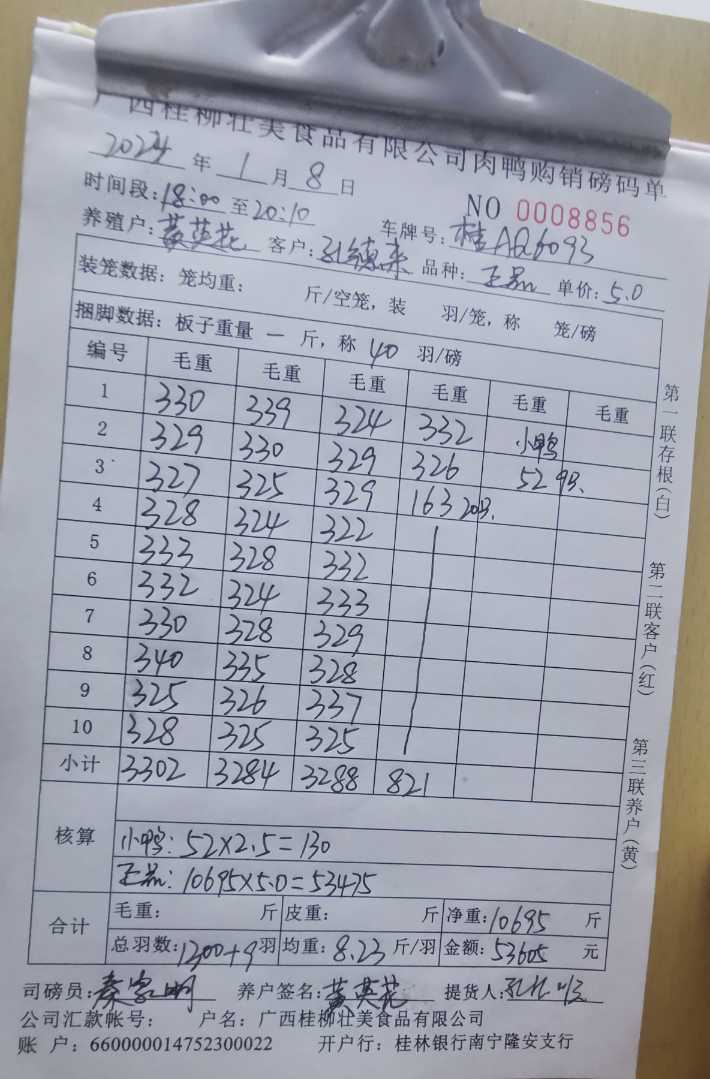 广西桂柳壮美食品有限公司肉鸭购销磅码单
2024年1月8日 NO 0008856
时间段:18:00至20:10 车牌号:桂AQ6093
养殖户:黄英花 客户:孔德来 品种:正品 单价:5.0
装笼数据:笼均重: 斤/空笼,装 羽/笼,称 笼/磅
捆脚数据:板子重量 一 斤,称40羽/磅
编号 毛重 毛重 毛重 毛重 毛重 毛重
1 330 339 324 332 小鸭
2 329 330 329 326 52 9只.
3 327 325 329 163 20只.
4 328 324 322
5 333 328 332
6 332 324 333
7 330 328 329
8 340 335 328
9 325 326 337
10 328 325 325
小计 3302 3284 3288 821
核算
小鸭:52×2.5=130
正品:10695×5.0=53475
合计 毛重: 斤 皮重: 斤 净重:10695 斤
总羽数:1300+9羽 均重:8.23斤/羽 金额:53605 元
司磅员:秦家明 养户签名:黄英花 提货人:
公司汇款帐号: 户名:广西桂柳壮美食品有限公司
账 户:660000014752300022 开户行:桂林银行南宁隆安支行
第一联存根(白)
第二联客户(红)
第三联养户(黄)